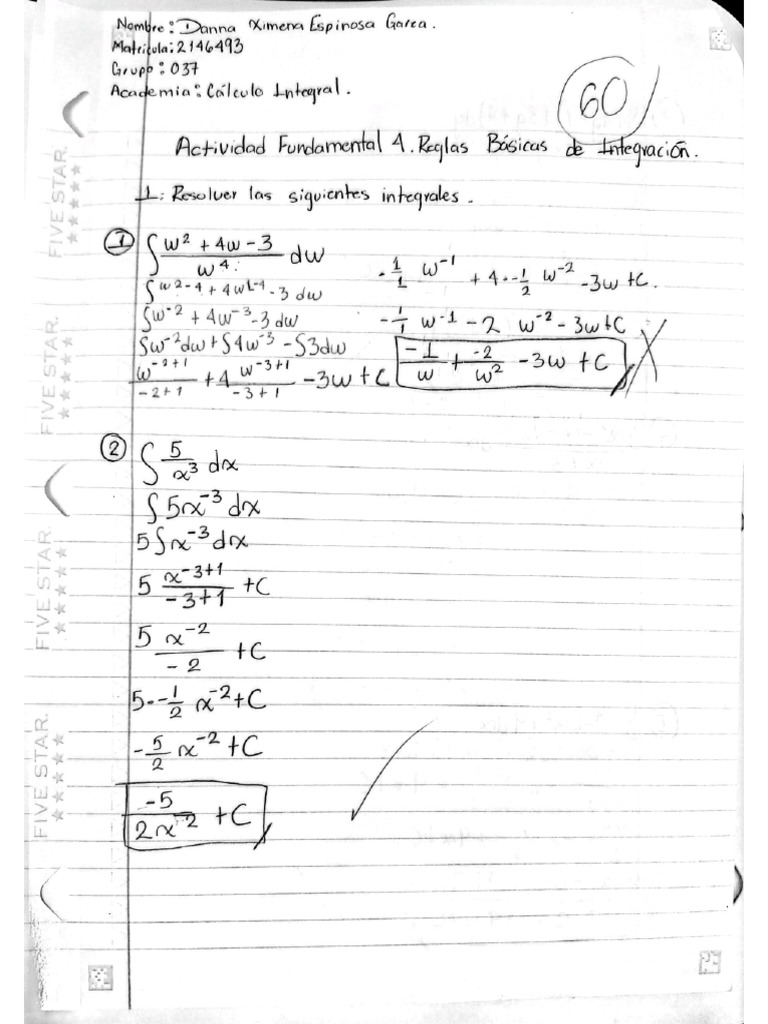 Nombre: Danna Ximena Espinosa Garca.
Matricula: 2146493
Grupo: 037
Academia: Cálculo Integral.
60
Actividad Fundamental 1. Reglas Básicas de Integración.
1: Resolver las siguientes integrales.
① ∫ (w² + 4w - 3)/w⁴ dw
∫ w²⁻⁴ + 4w¹⁻⁴ - 3 dw
∫ w⁻² + 4w⁻³ - 3 dw
∫w⁻²dw + ∫4w⁻³ - ∫3dw
w⁻²⁺¹/-2+1 + 4 w⁻³⁺¹/-3+1 - 3w + C
- 1/1 w⁻¹ + 4 · -1/2 w⁻² - 3w + C.
- 1/1 w⁻¹ - 2 w⁻² - 3w + C
-1/w + -2/w² - 3w + C
② ∫ 5/x³ dx
∫ 5x⁻³ dx
5∫x⁻³dx
5 x⁻³⁺¹/-3+1 + C
5 x⁻²/-2 + C
5 · -1/2 x⁻² + C
-5/2 x⁻² + C
-5/2x⁻² + C
FIVE STAR.
FIVE STAR.
FIVE STAR.
FIVE STAR.